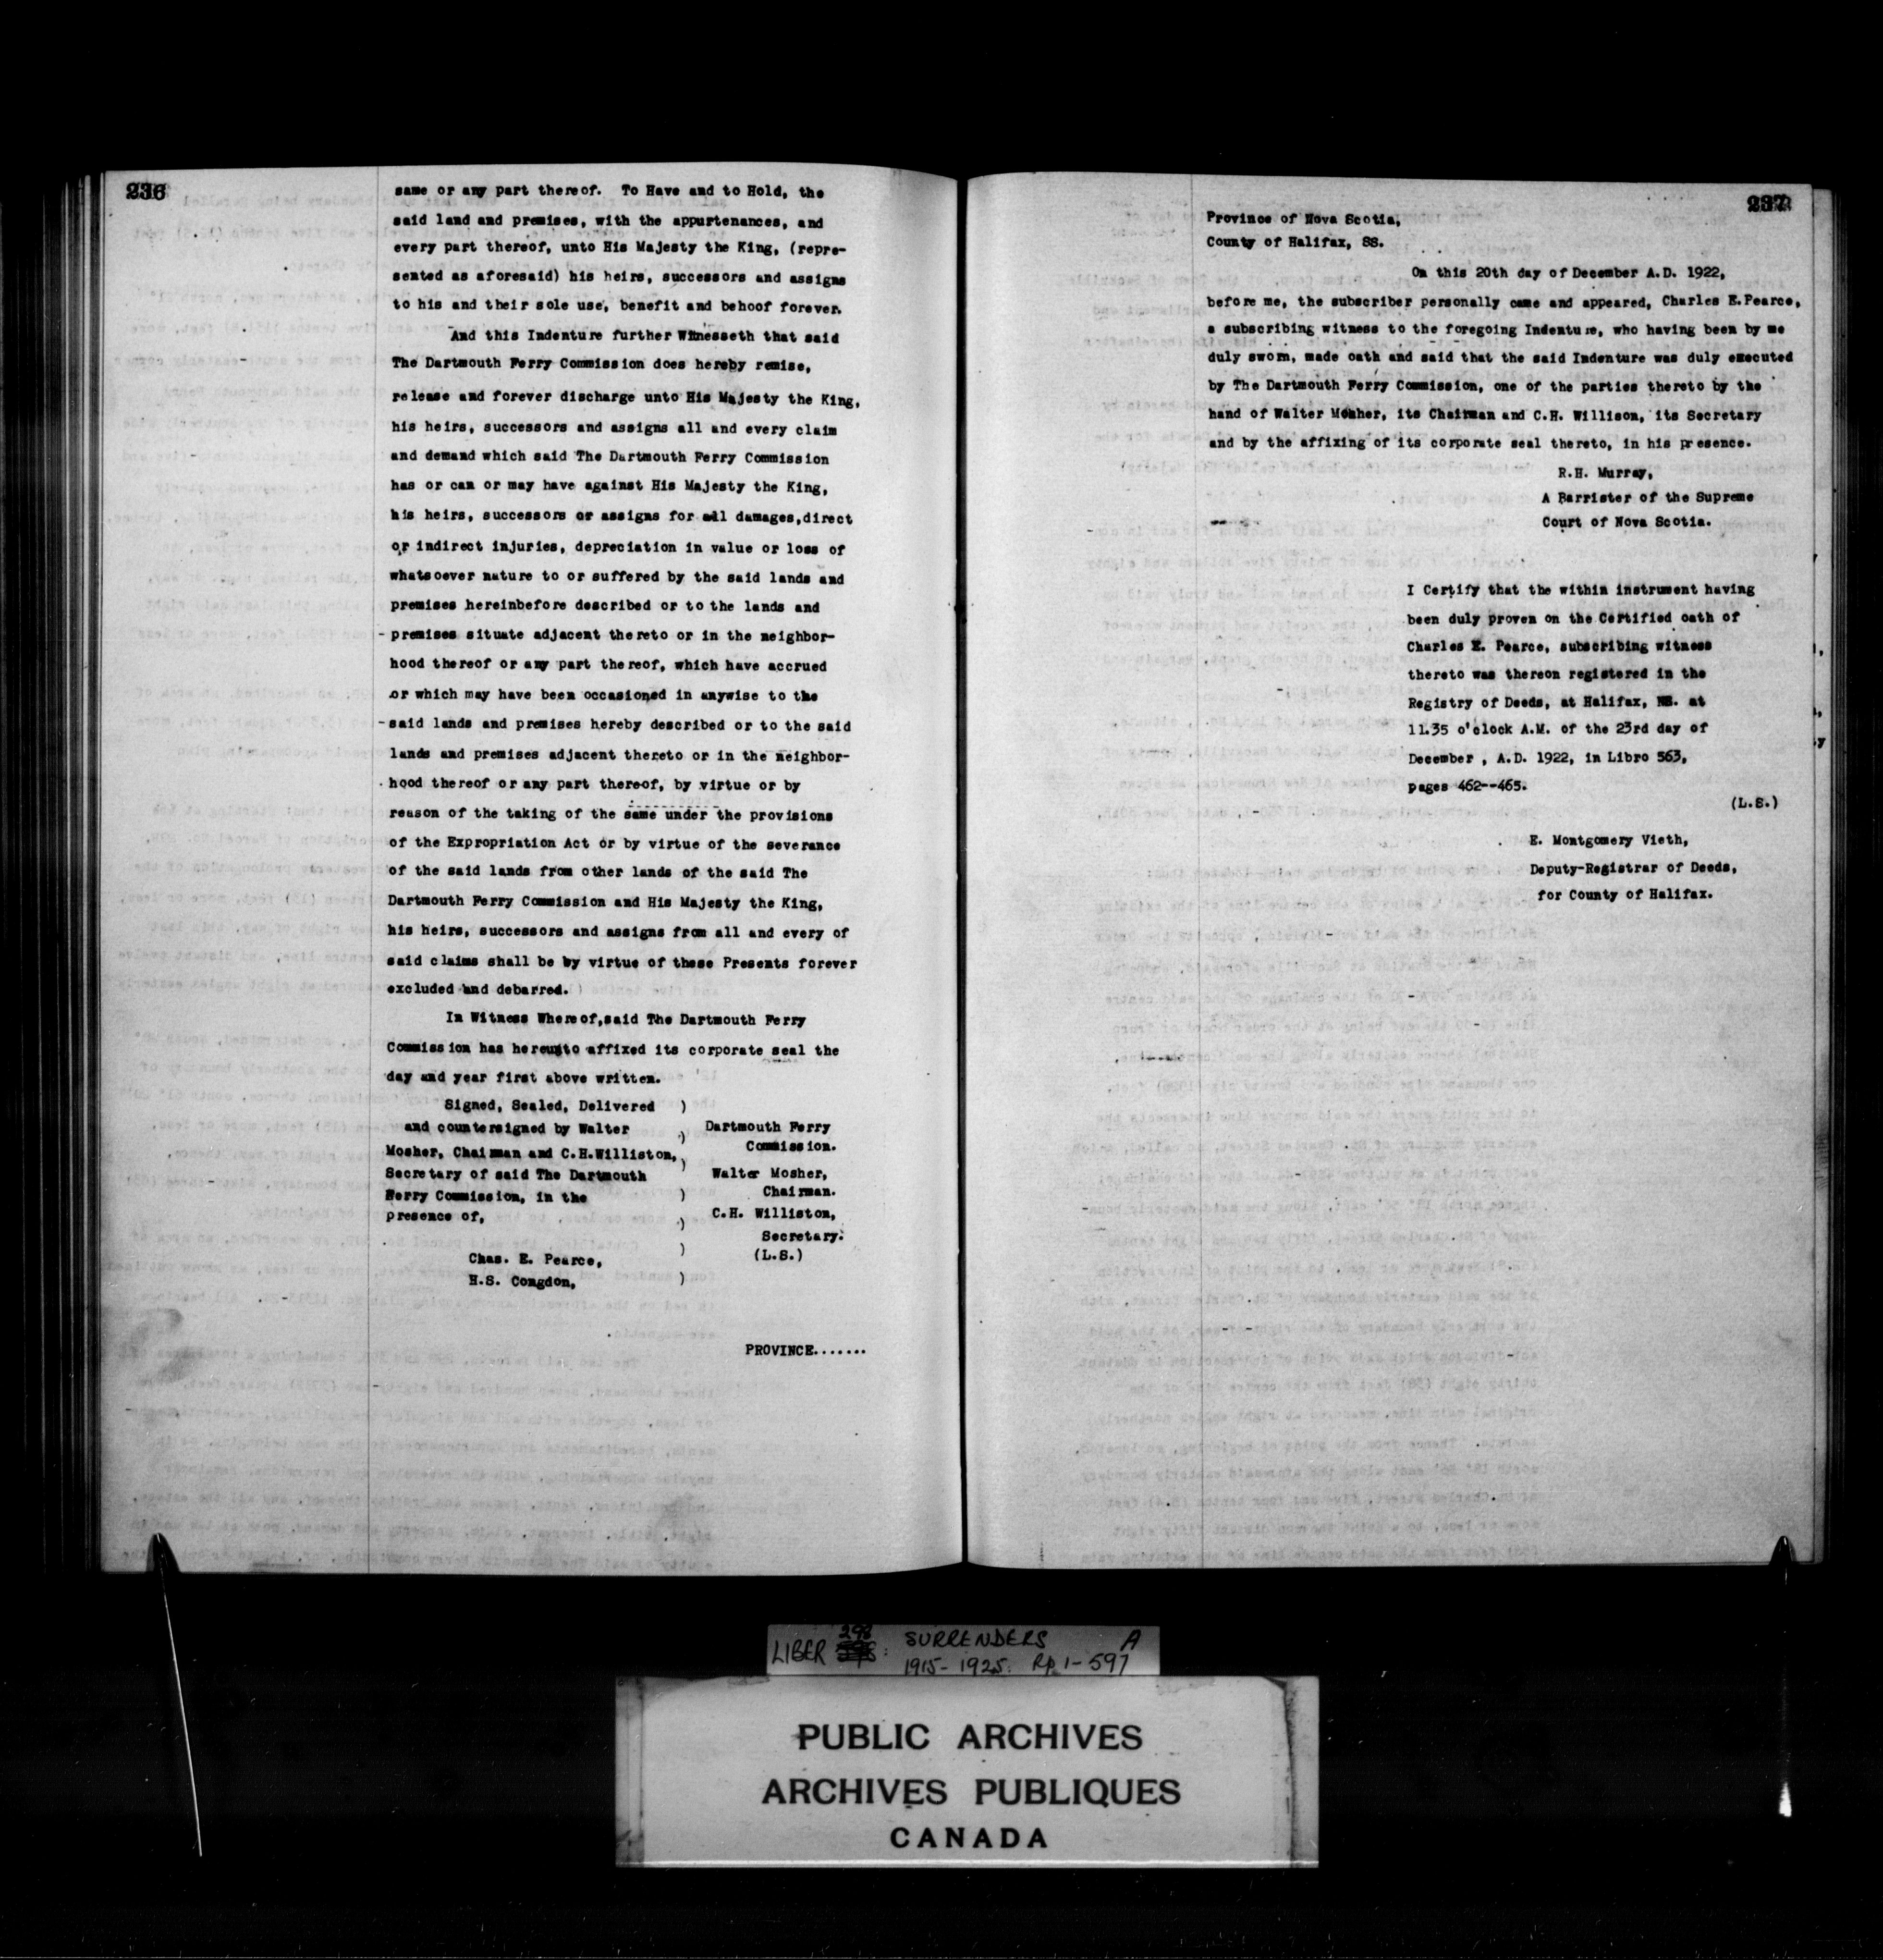 236
same or any part thereof. To Have and to Hold, the
said land and premises, with the appurtenances, and
every part thereof, unto His Majesty the King, (repre-
sented as aforesaid) his heirs, successors and assigns
to his and their sole use, benefit and behoof forever.
And this Indenture further Witnesseth that said
The Dartmouth Ferry Commission does hereby remise,
release and forever discharge unto His Majesty the King,
his heirs, successors and assigns all and every claim
and demand which said The Dartmouth Ferry Commission
has or can or may have against His Majesty the King,
his heirs, successors or assigns for all damages,direct
or indirect injuries, depreciation in value or loss of
whatsoever nature to or suffered by the said lands and
premises hereinbefore described or to the lands and
premises situate adjacent thereto or in the neighbor-
hood thereof or any part thereof, which have accrued
or which may have been occasioned in anywise to the
said lands and premises hereby described or to the said
lands and premises adjacent thereto or in the neighbor-
hood thereof or any part thereof, by virtue or by
reason of the taking of the same under the provisions
of the Expropriation Act or by virtue of the severance
of the said lands from other lands of the said The
Dartmouth Ferry Commission and His Majesty the King,
his heirs, successors and assigns from all and every of
said claims shall be by virtue of these Presents forever
excluded and debarred.
In Witness Whereof,said The Dartmouth Ferry
Commission has hereunto affixed its corporate seal the
day and year first above written.
Signed, Sealed, Delivered )
and countersigned by Walter ) Dartmouth Ferry
Commission.
Mosher, Chairman and C.H.Williston, )
Secretary of said The Dartmouth Walter Mosher,
Ferry Commission, in the ) Chairman.
presence of, ) C.H. Williston,
Secretary.
) (L.S.)
Chas. E. Pearce,
H.S. Congdon, )
PROVINCE.......
237
Province of Nova Scotia,
County of Halifax, SS.
On this 20th day of December A.D. 1922,
before me, the subscriber personally came and appeared, Charles E.Pearce,
a subscribing witness to the foregoing Indenture, who having been by me
duly sworn, made oath and said that the said Indenture was duly executed
by The Dartmouth Ferry Commission, one of the parties thereto by the
hand of Walter Mosher, its Chairman and C.H. Willison, its Secretary
and by the affixing of its corporate seal thereto, in his presence.
R.H. Murray,
A Barrister of the Supreme
Court of Nova Scotia.
I Certify that the within instrument having
been duly proven on the Certified oath of
Charles E. Pearce, subscribing witness
thereto was thereon registered in the
Registry of Deeds, at Halifax, NS. at
11.35 o'clock A.M. of the 23rd day of
December , A.D. 1922, in Libro 563,
pages 462--465.
(L.S.)
E. Montgomery Vieth,
Deputy-Registrar of Deeds,
for County of Halifax.
LIBER 298: SURRENDERS A
1915-1925. Rp 1-597
PUBLIC ARCHIVES
ARCHIVES PUBLIQUES
CANADA